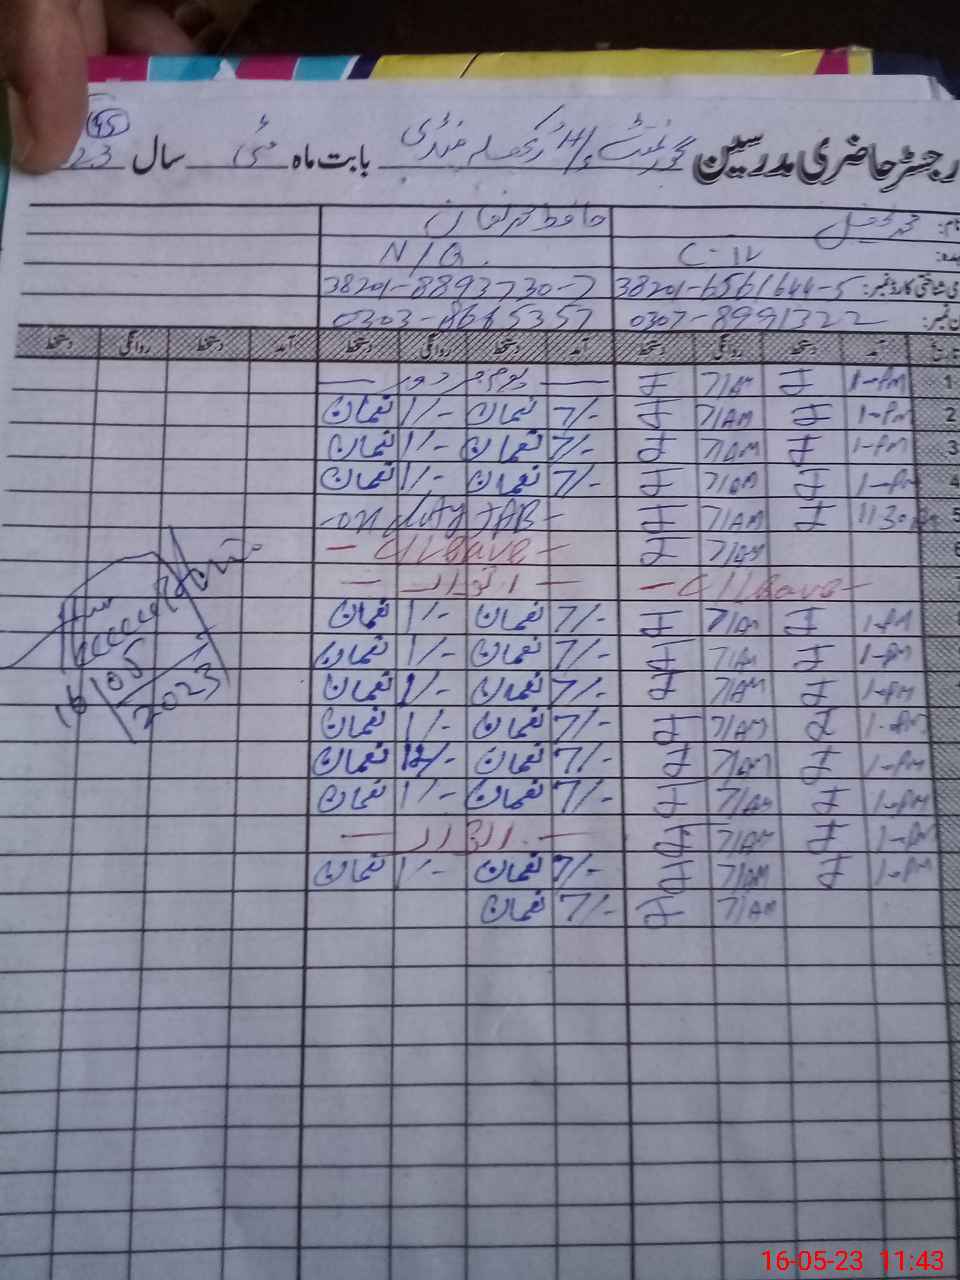 45
رجسٹر حاضری مدرسین گورنمنٹ بابت ماہ مئی سال 23
نام: محمد حافظ محمد نعمان
C-IV N/Q
شناختی کارڈ نمبر: 38201-6561644-5 38201-8893730-7
نمبر: 0307-8991322 0303-8665357
تاریخ آمد دستخط روانگی دستخط آمد دستخط روانگی دستخط آمد دستخط روانگی دستخط
1 1-PM 7/AM — یوم مزدور —
2 1-PM 7/AM 7/- نعمان 1/- نعمان
3 1-PM 7/AM 7/- نعمان 1/- نعمان
4 1-PM 7/AM 7/- نعمان 1/- نعمان
5 11:30 7/AM -on duty +AB-
6 7/AM - C/Leave -
- C/Leave - — اتوار —
1-PM 7/AM 7/- نعمان 1/- نعمان
1-PM 7/AM 7/- نعمان 1/- نعمان
1-PM 7/AM 7/- نعمان 1/- نعمان
1-PM 7/AM 7/- نعمان 1/- نعمان
1-PM 7/AM 7/- نعمان 12/- نعمان
1-PM 7/AM 7/- نعمان 1/- نعمان
1-PM 7/AM — اتوار —
1-PM 7/AM 7/- نعمان 1/- نعمان
7/AM 7/- نعمان
16/05/2023
16-05-23 11:43